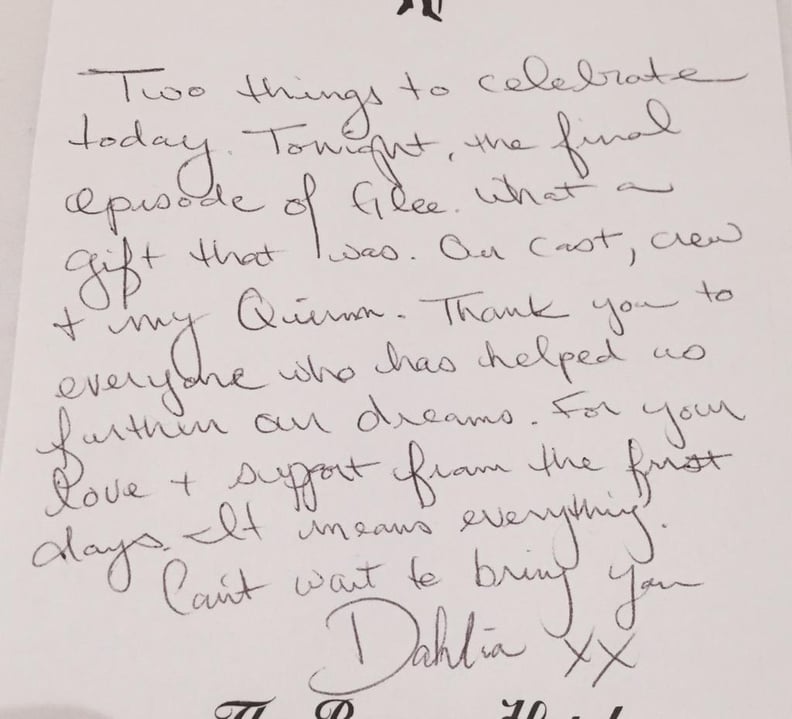 Two things to celebrate
today. Tonight, the final
episode of Glee. What a
gift that was. Our cast, crew
+ my Quinn. Thank you to
everyone who has helped us
further our dreams. For your
love + support from the first
days. It means everything.
Can't wait to bring you
Dahlia XX